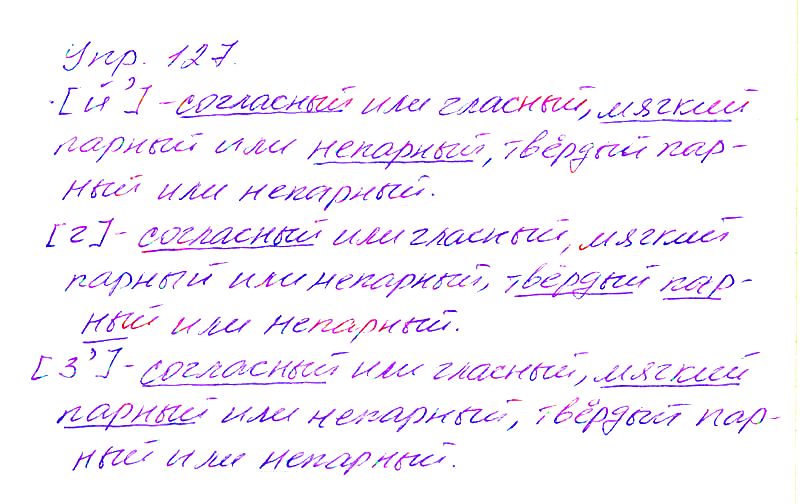 Упр. 127.
[й'] - согласный или гласный, мягкий
парный или непарный, твёрдый пар-
ный или непарный.
[г] - согласный или гласный, мягкий
парный или непарный, твёрдый пар-
ный или непарный.
[з'] - согласный или гласный, мягкий
парный или непарный, твёрдый пар-
ный или непарный.